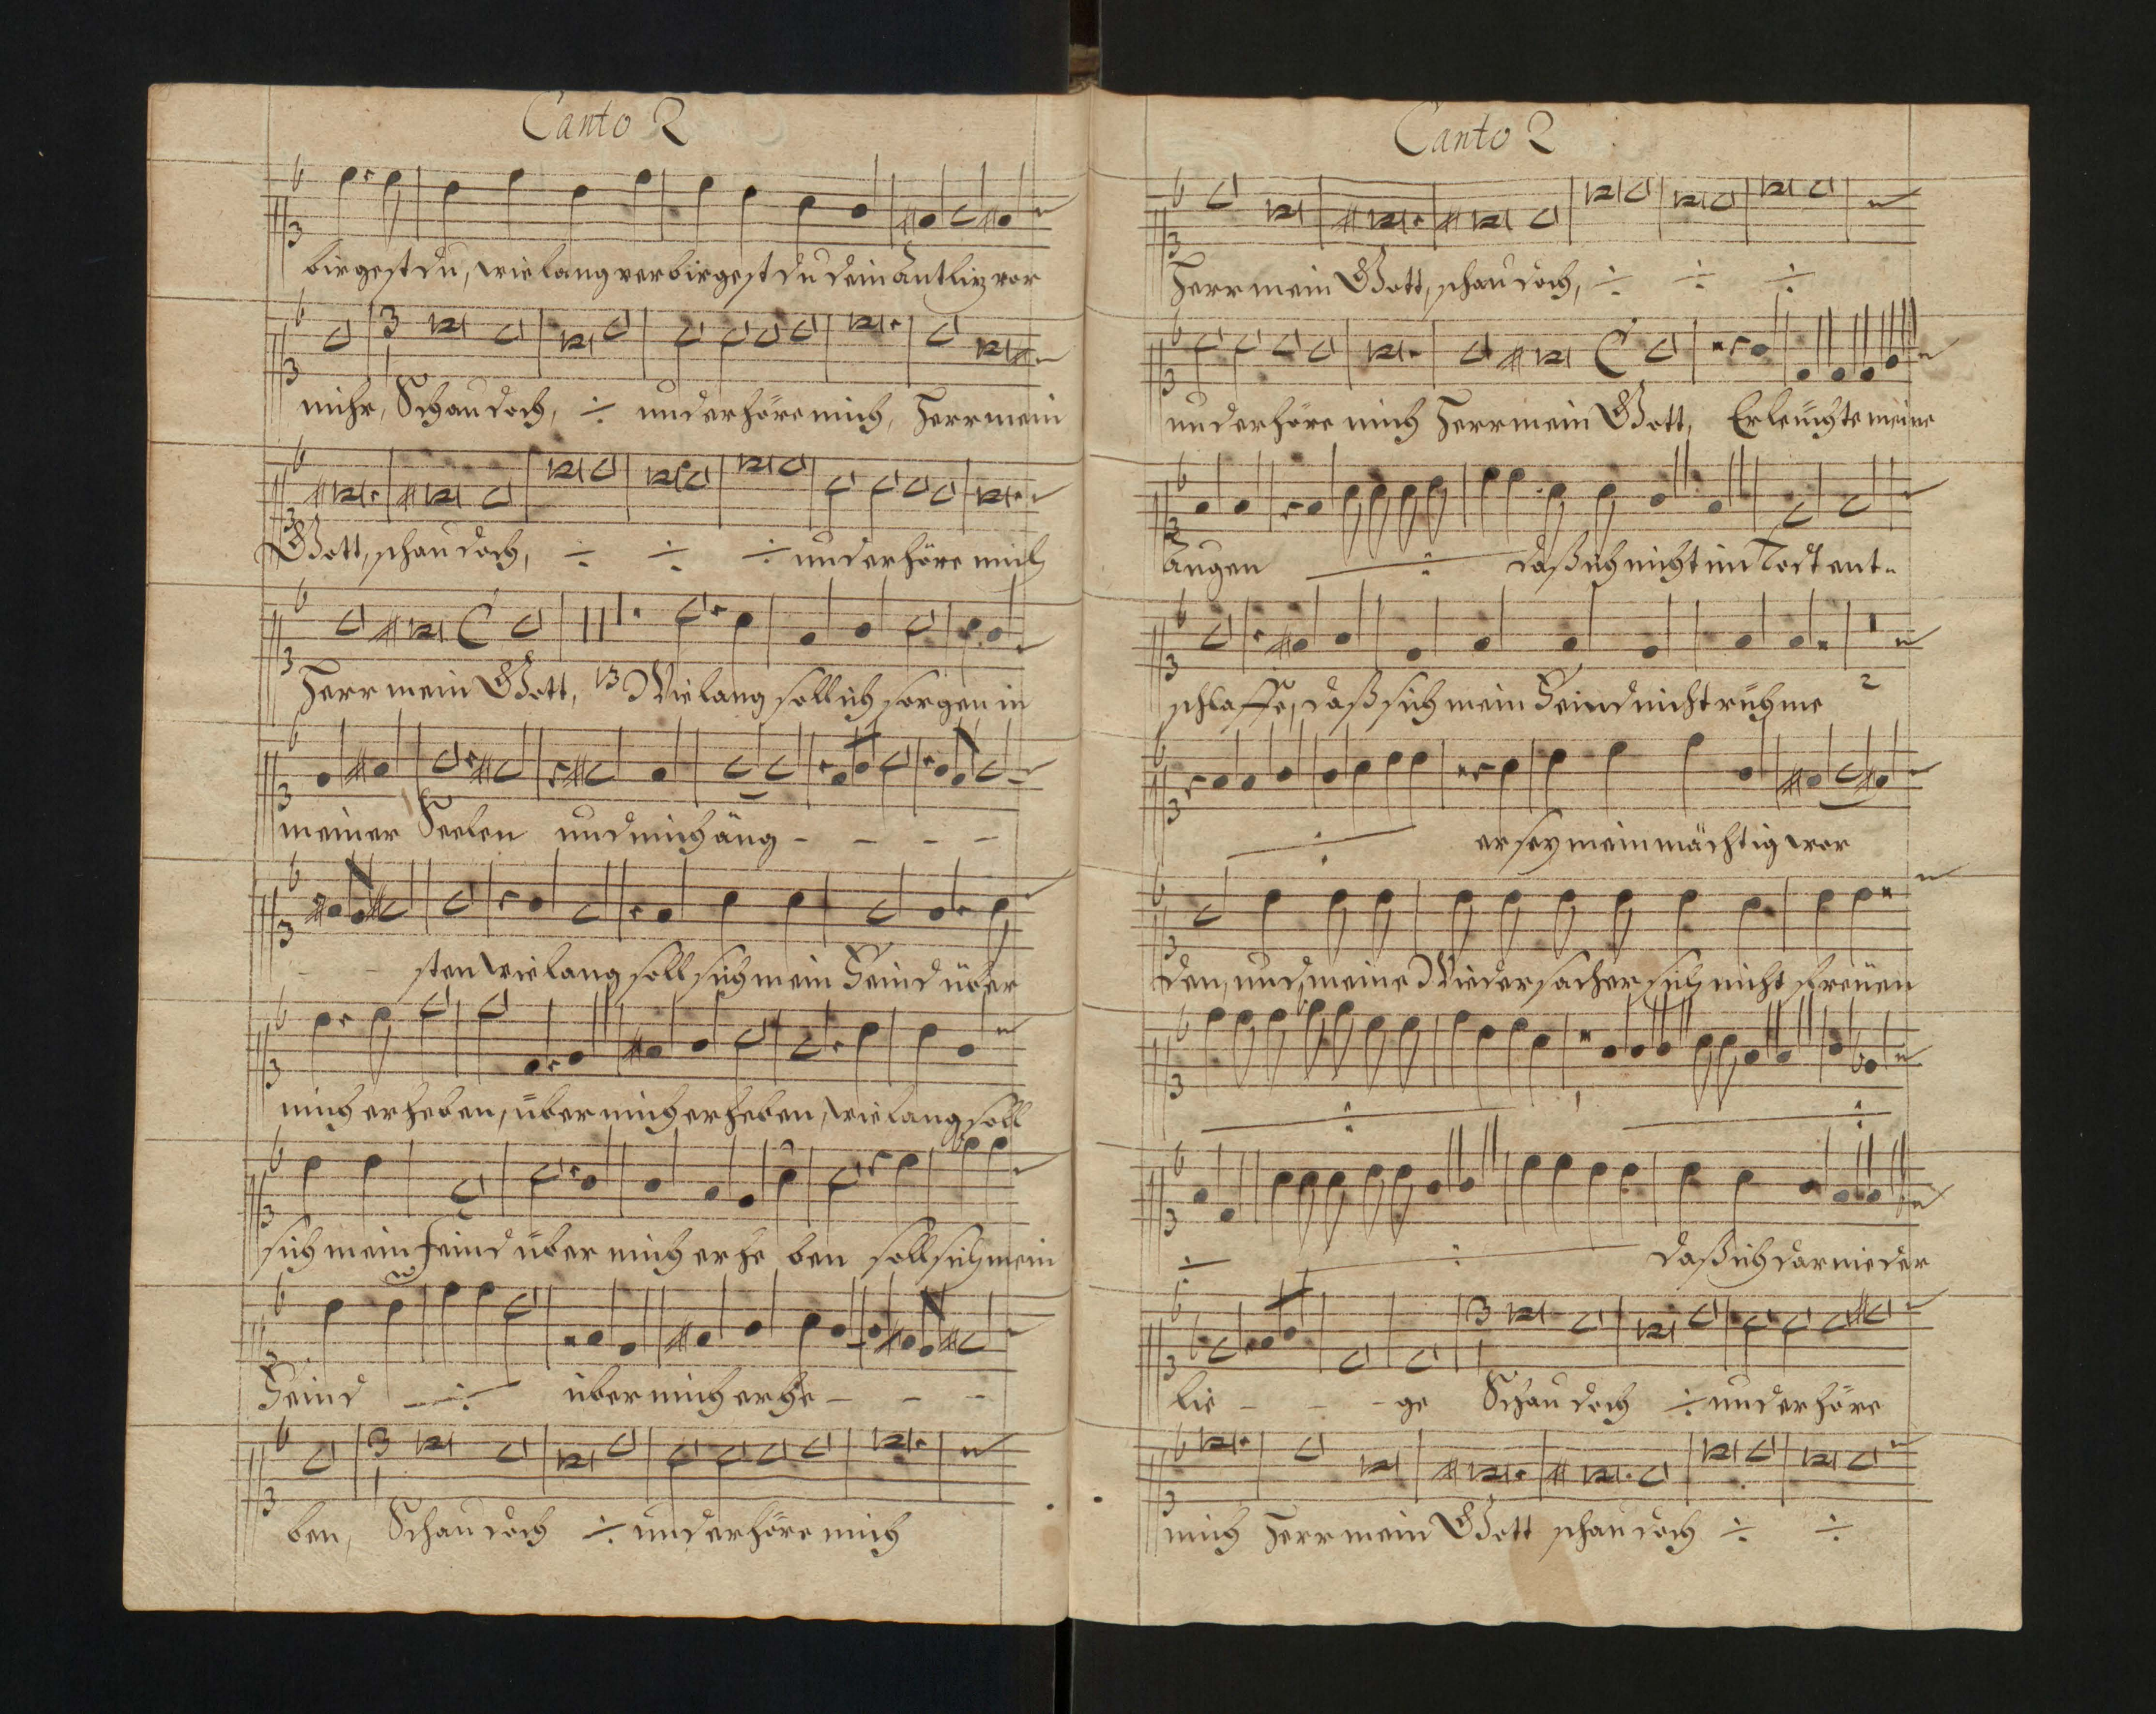 Canto 2
birgest du, wie lang verbirgest du dein Antliz vor
mihr, Schau doch, ÷ und erhöre mich, Herr mein
Gott, schau doch, ÷ ÷ ÷ und erhöre mich
Herr mein Gott, 13 Wie lang soll ich sorgen in
meiner Seelen und mich äng - - - -
- - sten wie lang soll sich mein Feind über
mich erheben, über mich erheben, wie lang soll
sich mein feind über mich erhe ben soll sich mein
Feind ÷ über mich erhe - - -
ben, Schau doch ÷ und erhöre mich
Canto 2
Herr mein Gott, schau doch, ÷ ÷ ÷
und erhöre mich Herr mein Gott, Erleuchte meine
Augen ÷ daß ich nicht im Todt ent-
schlaffe, daß sich mein Feind nicht rühme 2
÷ er sey mein mächtig wor
den, und meine Wiedersacher sich nicht freüen
÷ ÷
÷ ÷ daß ich darnieder
lie - - - ge Schau doch ÷ und erhöre
mich Herr mein Gott schau doch ÷ ÷